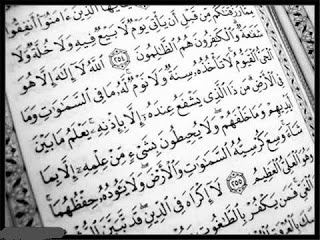 ٱلَّذِينَ ءَامَنُوٓا۟ أَنفِقُوا۟
مِمَّا رَزَقْنَـٰكُم مِّن قَبْلِ أَن يَأْتِىَ يَوْمٌ لَّا بَيْعٌ فِيهِ وَلَا خُلَّةٌ وَلَا
شَفَـٰعَةٌ وَٱلْكَـٰفِرُونَ هُمُ ٱلظَّـٰلِمُونَ ٢٥٤ ٱللَّهُ لَآ إِلَـٰهَ إِلَّا هُوَ
ٱلْحَىُّ ٱلْقَيُّومُ لَا تَأْخُذُهُۥ سِنَةٌ وَلَا نَوْمٌ لَّهُۥ مَا فِى ٱلسَّمَـٰوَٰتِ وَمَا
فِى ٱلْأَرْضِ مَن ذَا ٱلَّذِى يَشْفَعُ عِندَهُۥٓ إِلَّا بِإِذْنِهِۦ يَعْلَمُ مَا بَيْنَ
أَيْدِيهِمْ وَمَا خَلْفَهُمْ وَلَا يُحِيطُونَ بِشَىْءٍ مِّنْ عِلْمِهِۦٓ إِلَّا بِمَا
شَآءَ وَسِعَ كُرْسِيُّهُ ٱلسَّمَـٰوَٰتِ وَٱلْأَرْضَ وَلَا يَـُٔودُهُۥ حِفْظُهُمَا
وَهُوَ ٱلْعَلِىُّ ٱلْعَظِيمُ ٢٥٥ لَآ إِكْرَاهَ فِى ٱلدِّينِ قَد تَّبَيَّنَ
ٱلْغَىِّ فَمَن يَكْفُرْ بِٱلطَّـٰغُوتِ